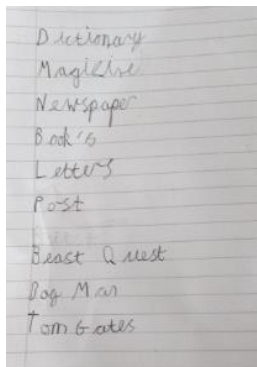 Dictionary
Magizine
Newspaper
Book's
Letters
Post
Beast Quest
Dog Man
Tom Gates